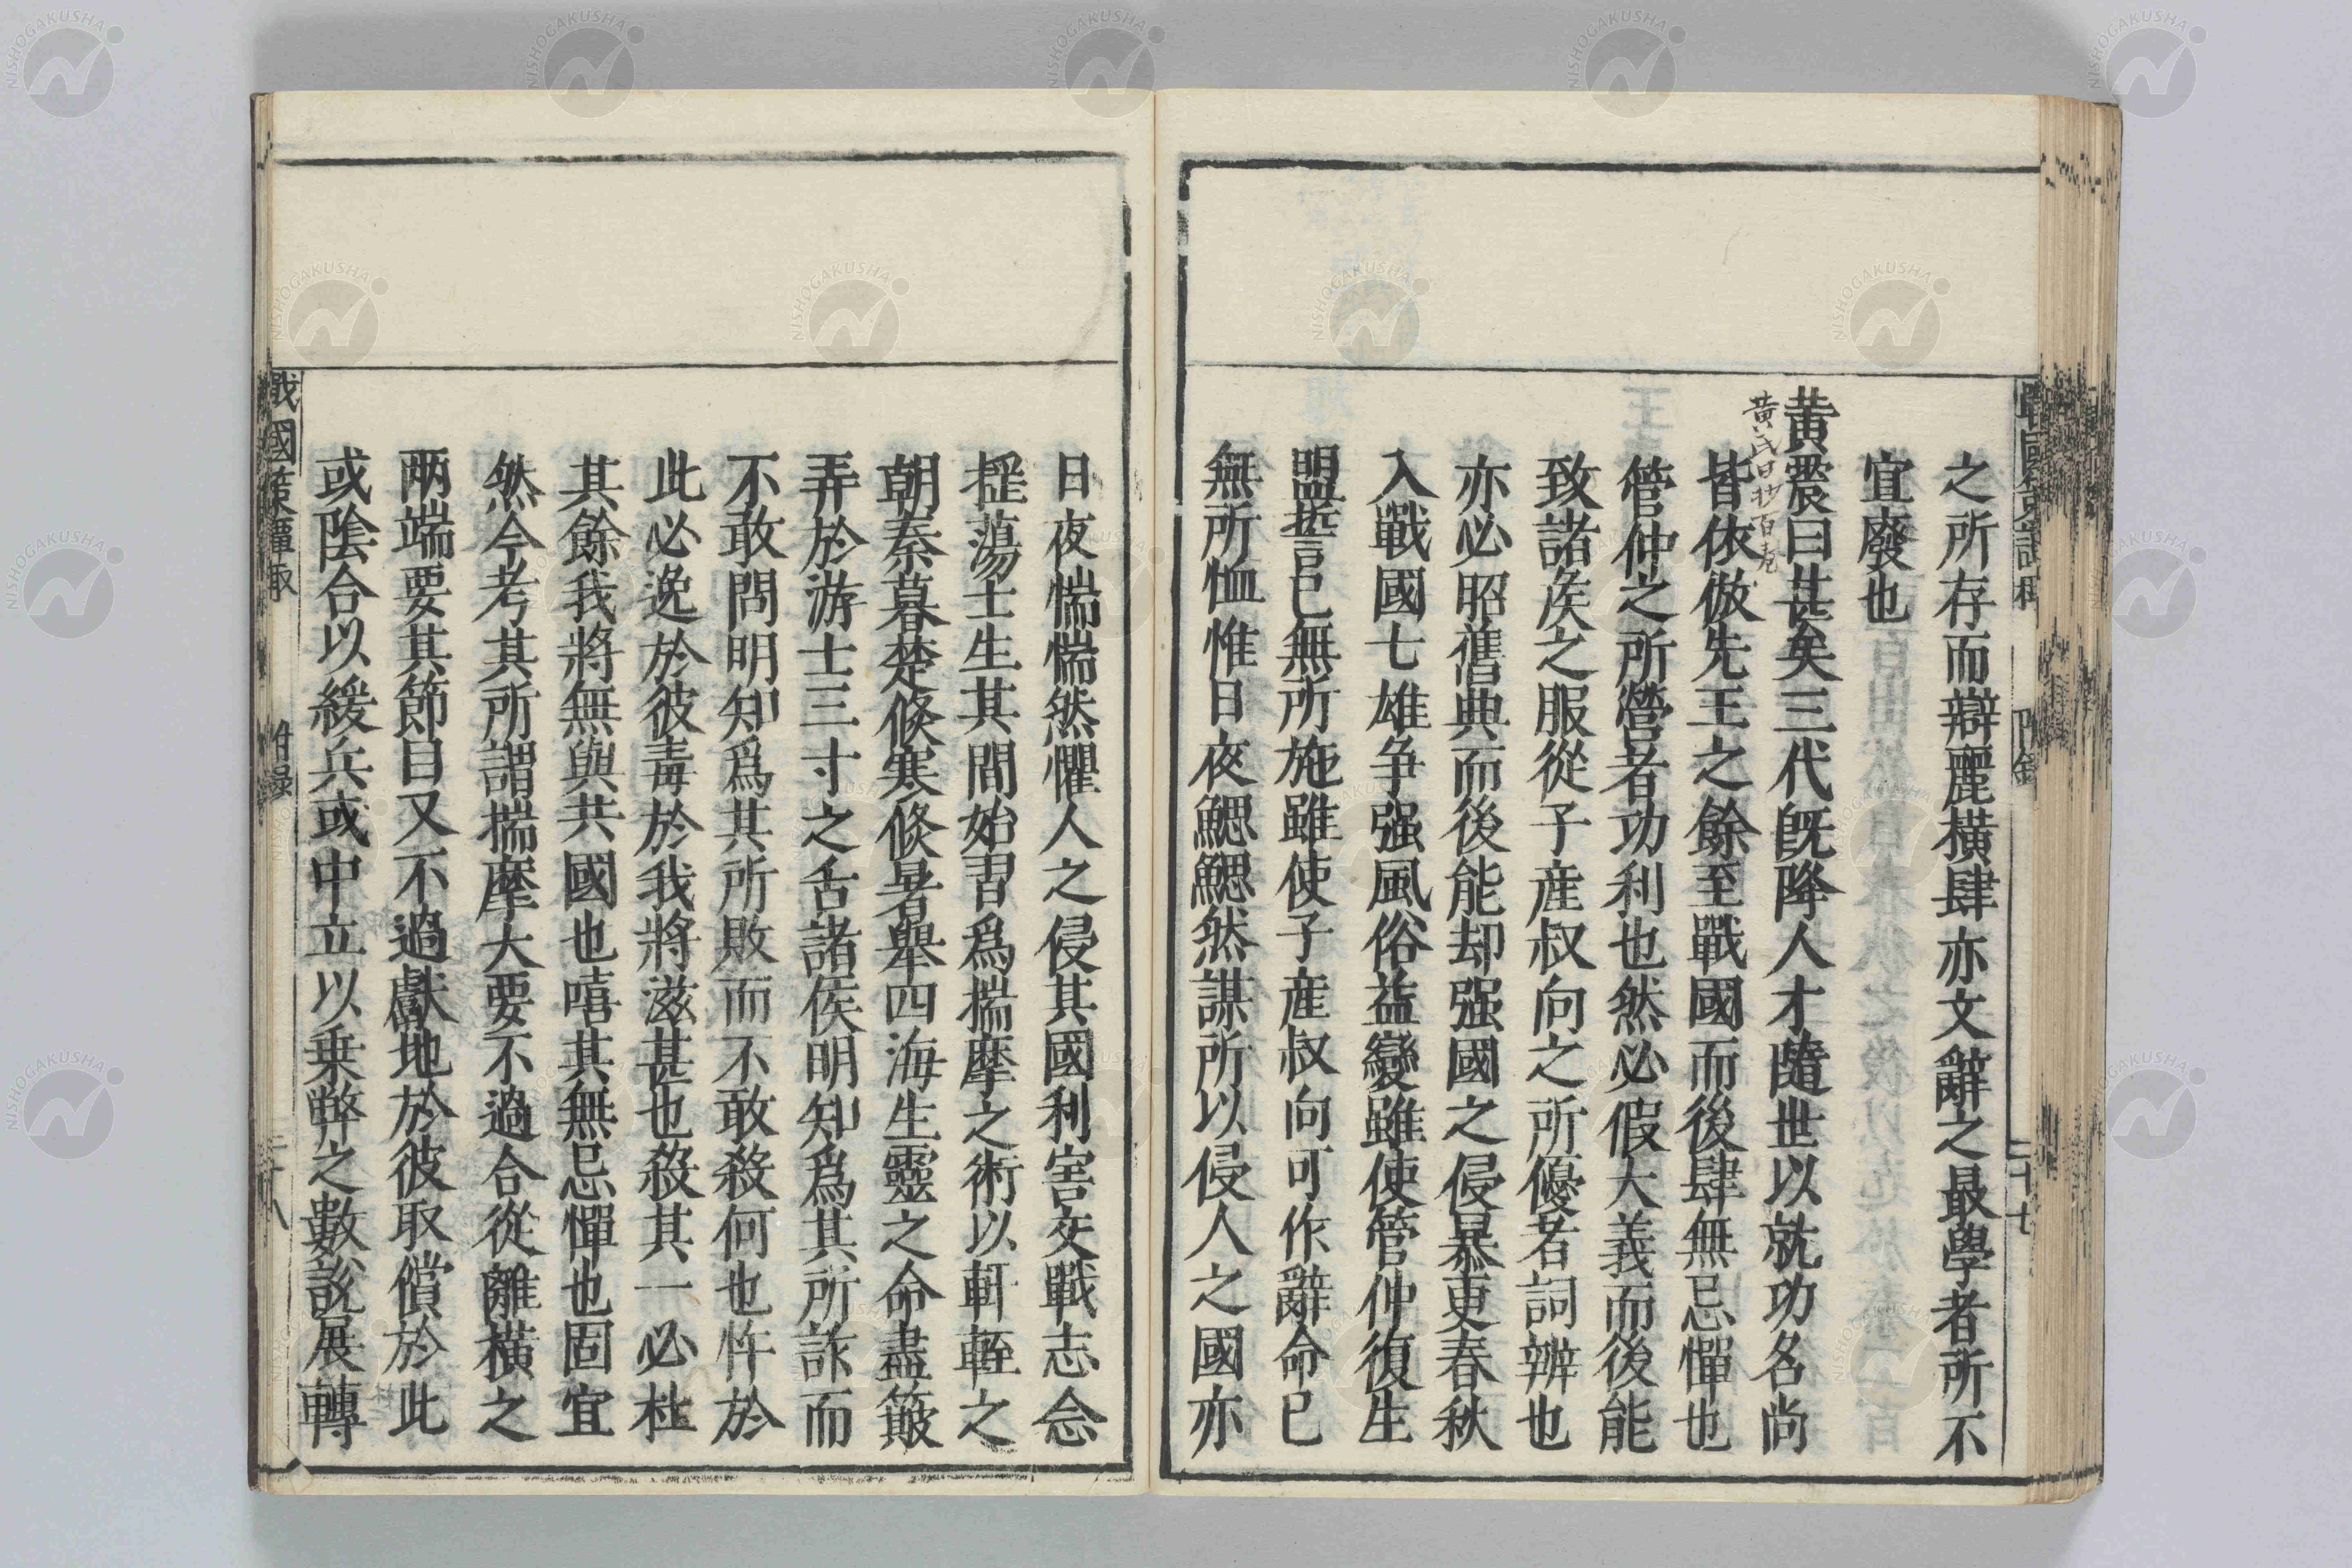 之所存而辯麗橫肆亦文辭之最學者所不
宜廢也
黃震曰甚矣三代旣降人才隨世以就功名尚
黃氏日抄百卷
皆依倣先王之餘至戰國而後肆無忌憚也
管仲之所營者功利也然必假大義而後能
致諸矦之服從子產叔向之所優者詞辨也
亦必昭舊典而後能却强國之侵暴吏春秋
入戰國七雄争强風俗益變雖使管仲復生
盟誓已無所施雖使子產叔向可作辭命已
無所恤惟日夜鰓鰓然謀所以侵人之國亦
戰國策譚棷 附錄 二十七
日夜惴惴然懼人之侵其國利害交戰志念
摇蕩士生其間始習爲揣摩之術以軒輊之
朝秦暮楚倏寒倏暑舉四海生靈之命盡簸
弄於游士三寸之舌諸侯明知爲其所訹而
不敢問明知爲其所敗而不敢殺何也忤於
此必逸於彼毒於我將滋甚也殺其一必杜
其餘我將無與共國也嘻其無忌憚也固宜
然今考其所謂揣摩大要不過合從離橫之
兩端要其節目又不過獻地於彼取償於此
或陰合以緩兵或中立以乗弊之數說展轉
戰國策譚棷 附錄 二十八
NISHOGAKUSHA